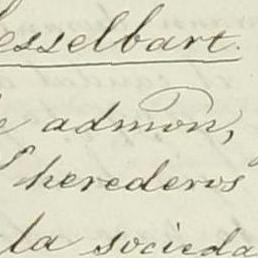 esselbart.
e admōn,
herederos
la socieda